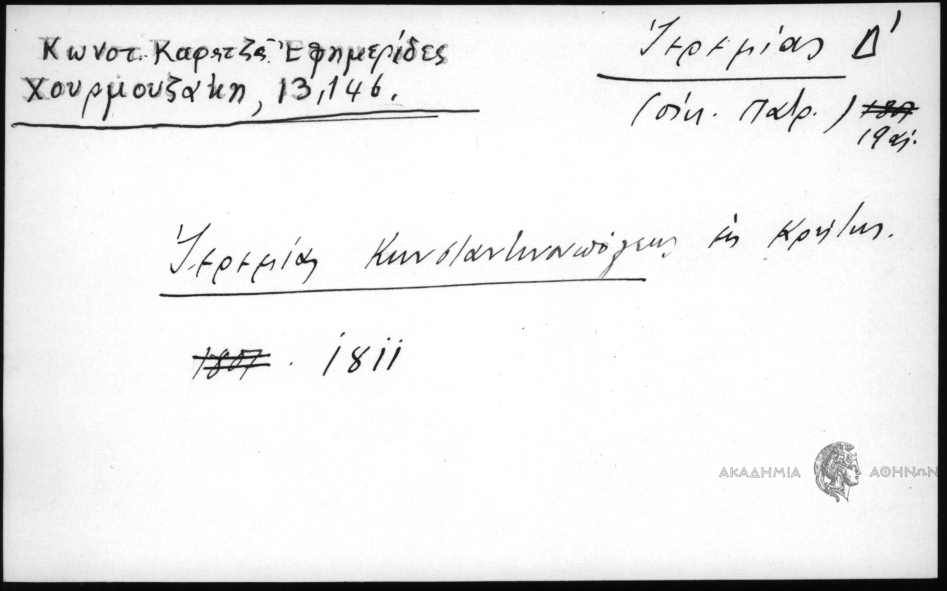 Κωνστ. Καρατζᾶ Ἐφημερίδες
Χουρμουζάκη, 13,146.
Ἱερεμίας Δ'
(οἰκ. Πατρ.) 1807
19 αἰ.
Ἱερεμίας Κωνσταντινουπόλεως ἐκ Κρήτης.
1807. 1811
ΑΚΑΔΗΜΙΑ ΑΘΗΝΩΝ